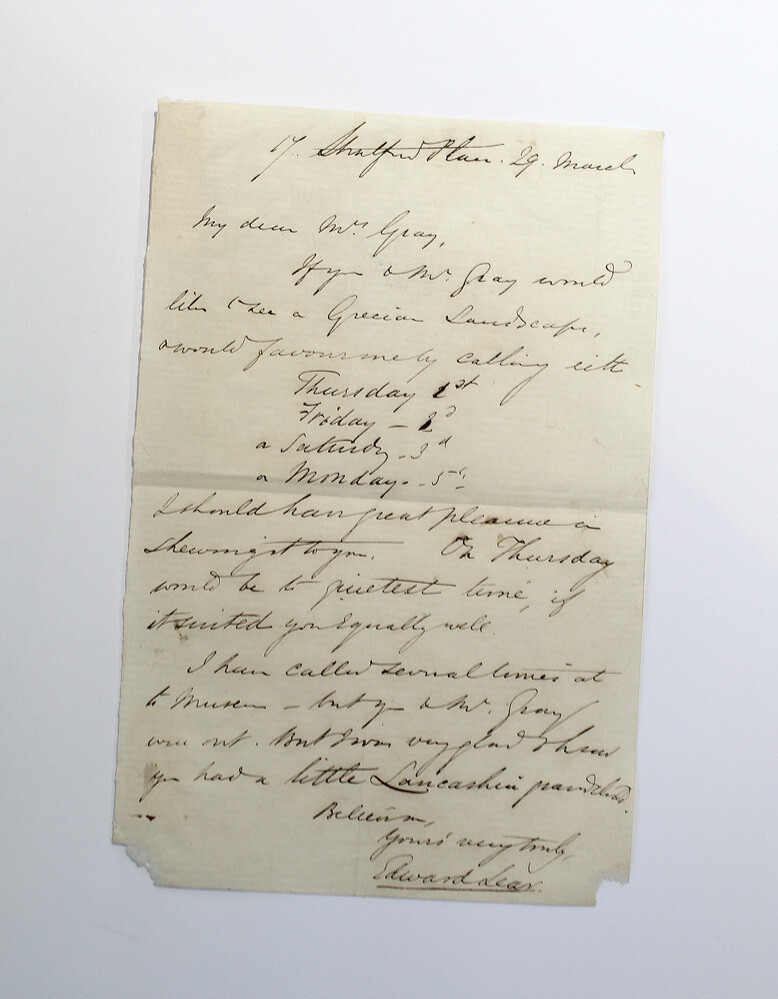 17. Stratford Place. 29. March
My dear Mrs. Gray,
If you & Mr. Gray would
like to see a Grecian Landscape,
& would favour me by calling eith
Thursday 1st
Friday – 2d
or Saturday – 3d
or Monday. – 5th
I should have great pleasure in
shewing it to you. On Thursday
would be the quietest time, if
it suited you equally well.
I have called several times at
the Museum – but you & Mr. Gray
were out. But I was very glad to hear
you had a little Lancashire grandchild.
Believe me,
Yours very truly,
Edward Lear.